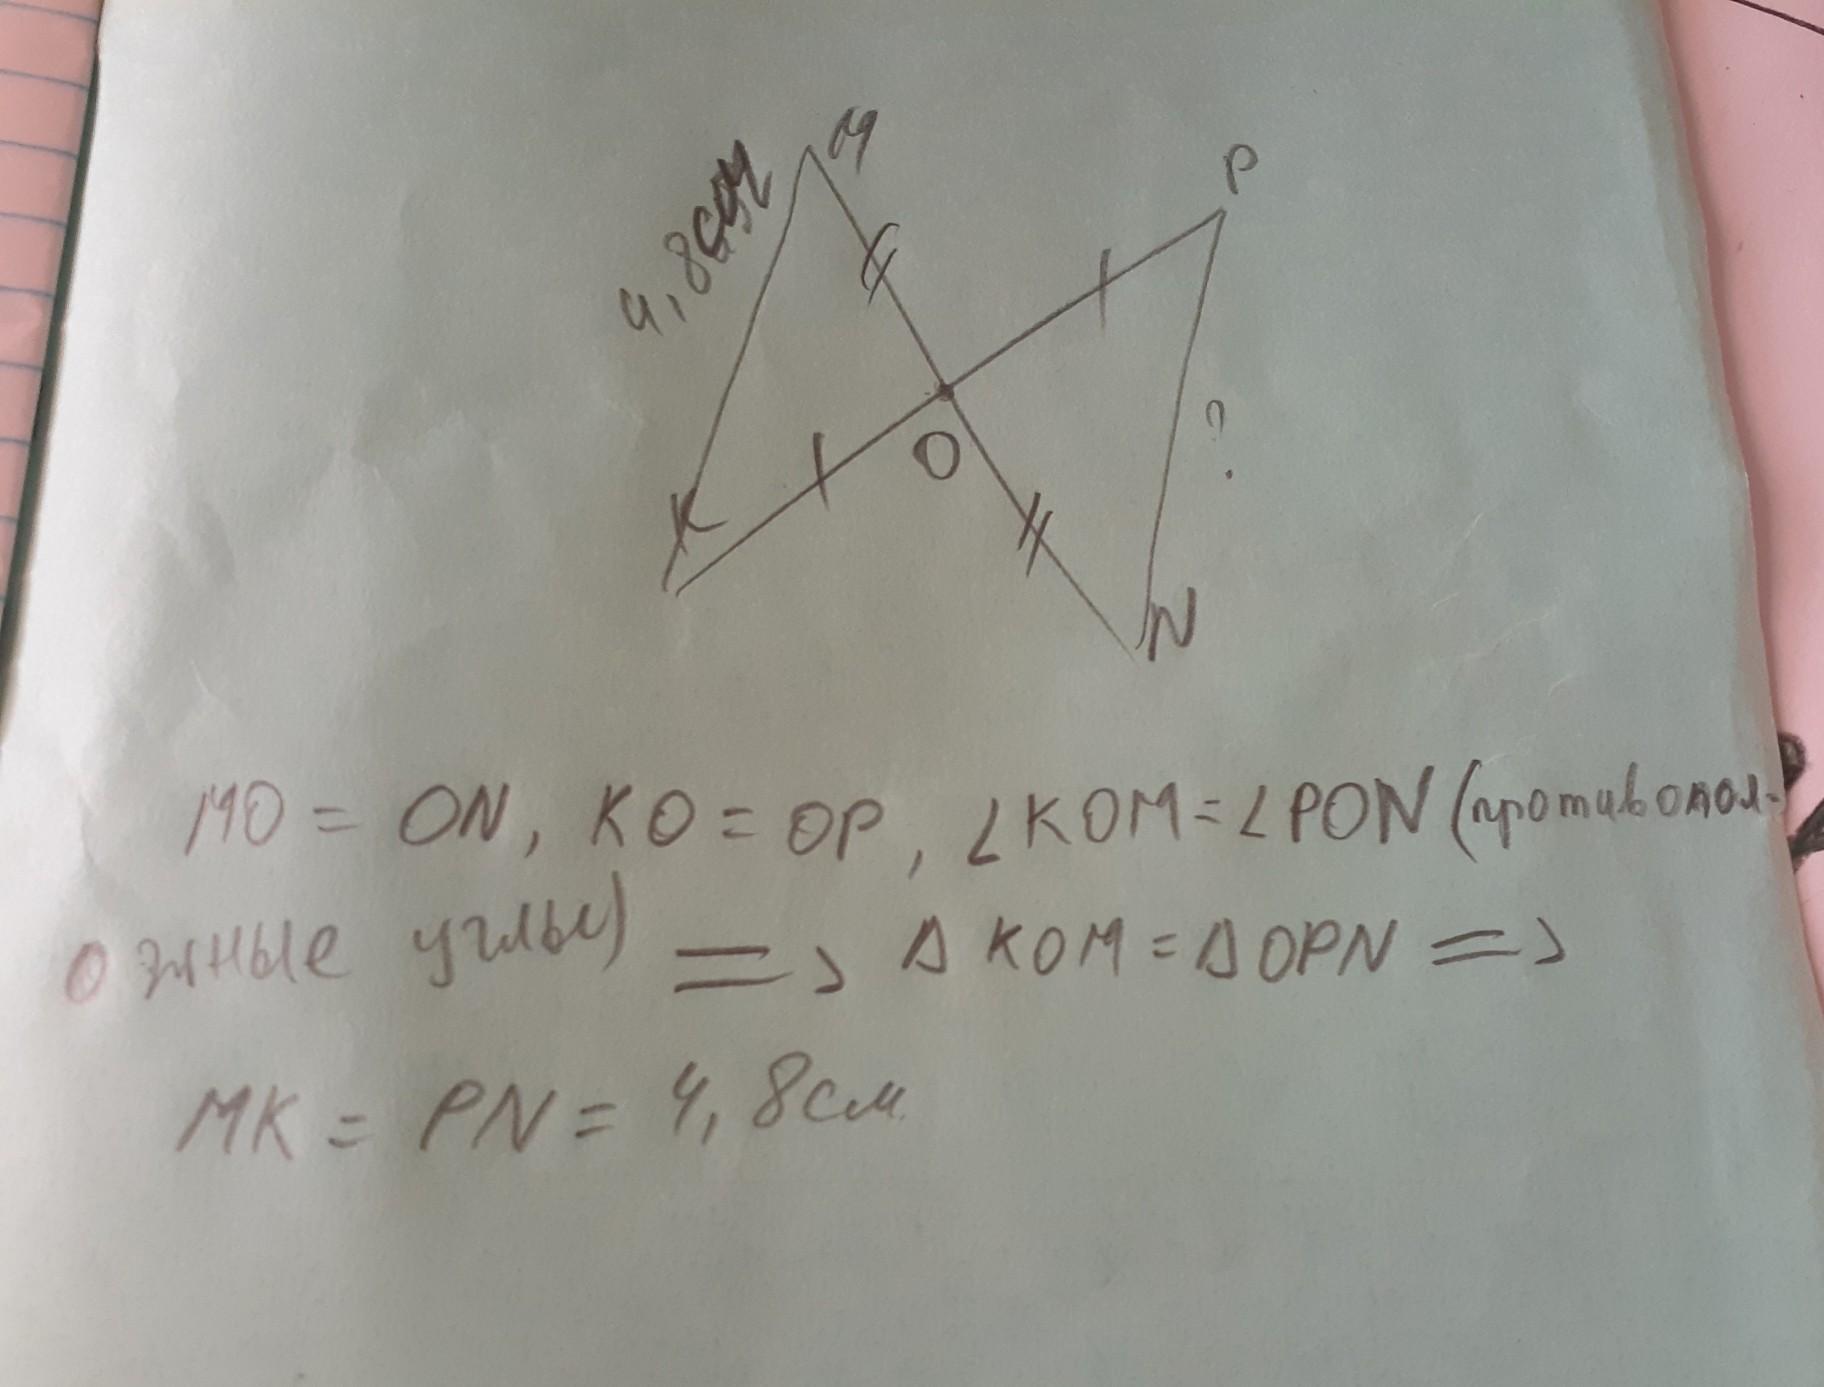 М
P
4,8см
?
O
K
N
MO = ON, KO = OP, ∠KOM = ∠PON (противопол-
ожные углы) => Δ KOM = Δ OPN =>
MK = PN = 4,8см